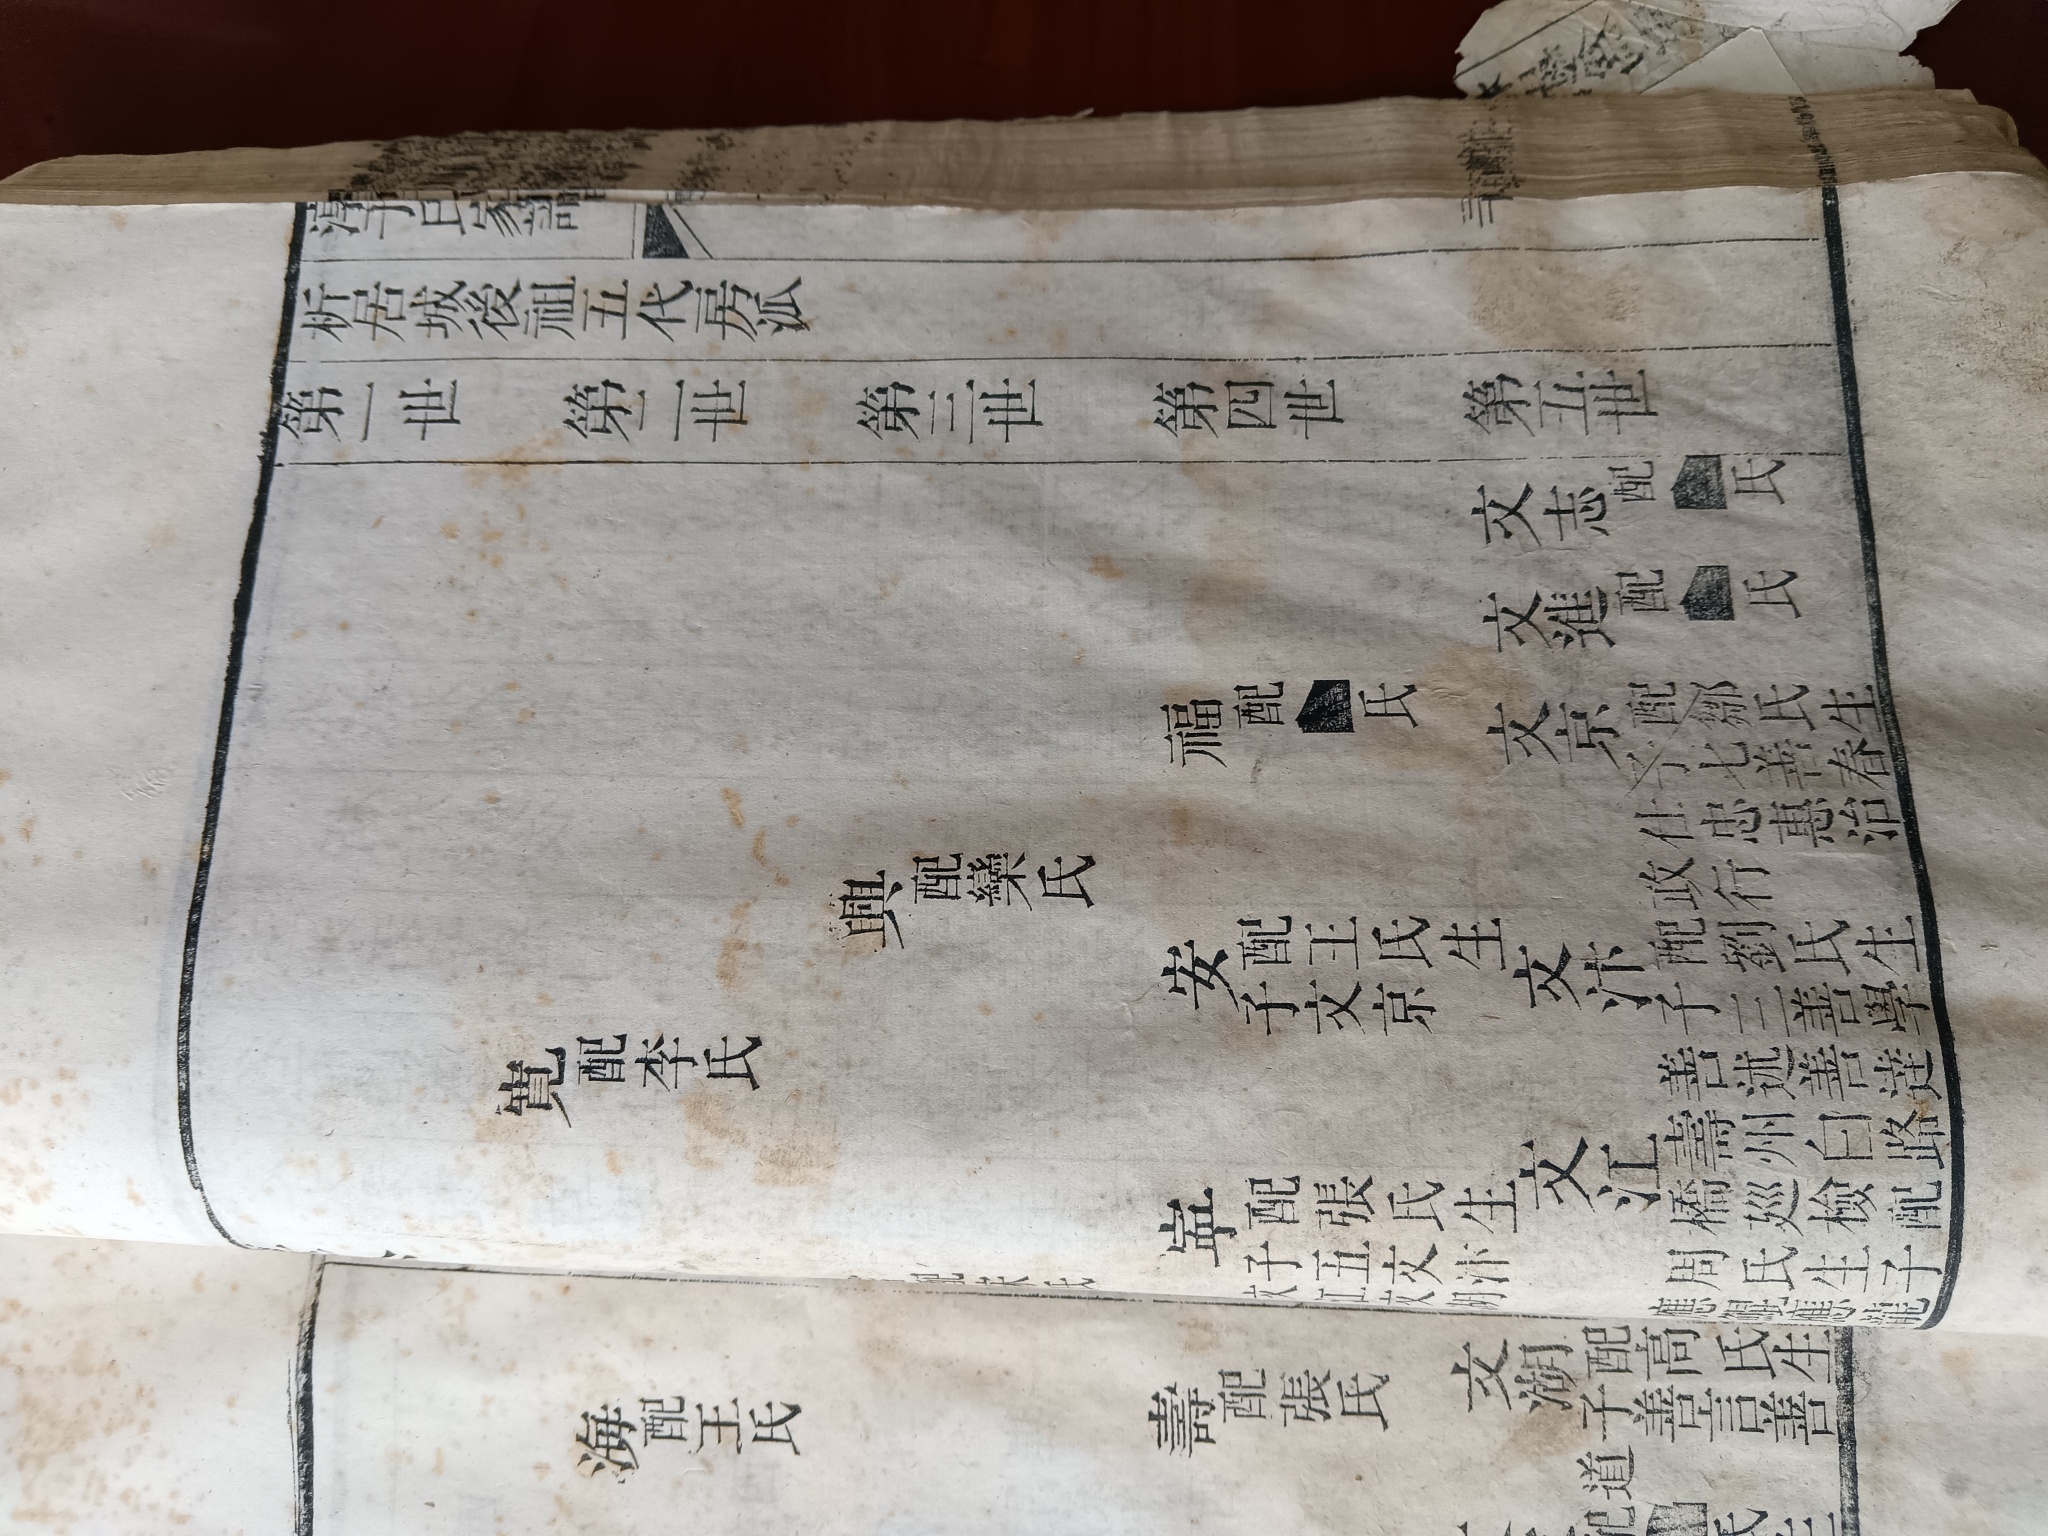 淳于氏家譜
析居城後祖五代房派
第一世
第二世
第三世
第四世
第五世
文志 配 氏
文進 配 氏
福 配 氏
文京 配鄒氏生
子七善春
仕忠惠治
政行
興 配欒氏
安 配王氏生
子文京
文汴 配劉氏生
子三善學
善述善達
配李氏
文江 壽州白路
橋巡檢配
周氏生子
配張氏生
子五文汴
文江文
海 配王氏
壽 配張氏
文湖 配高氏生
子善言善
道